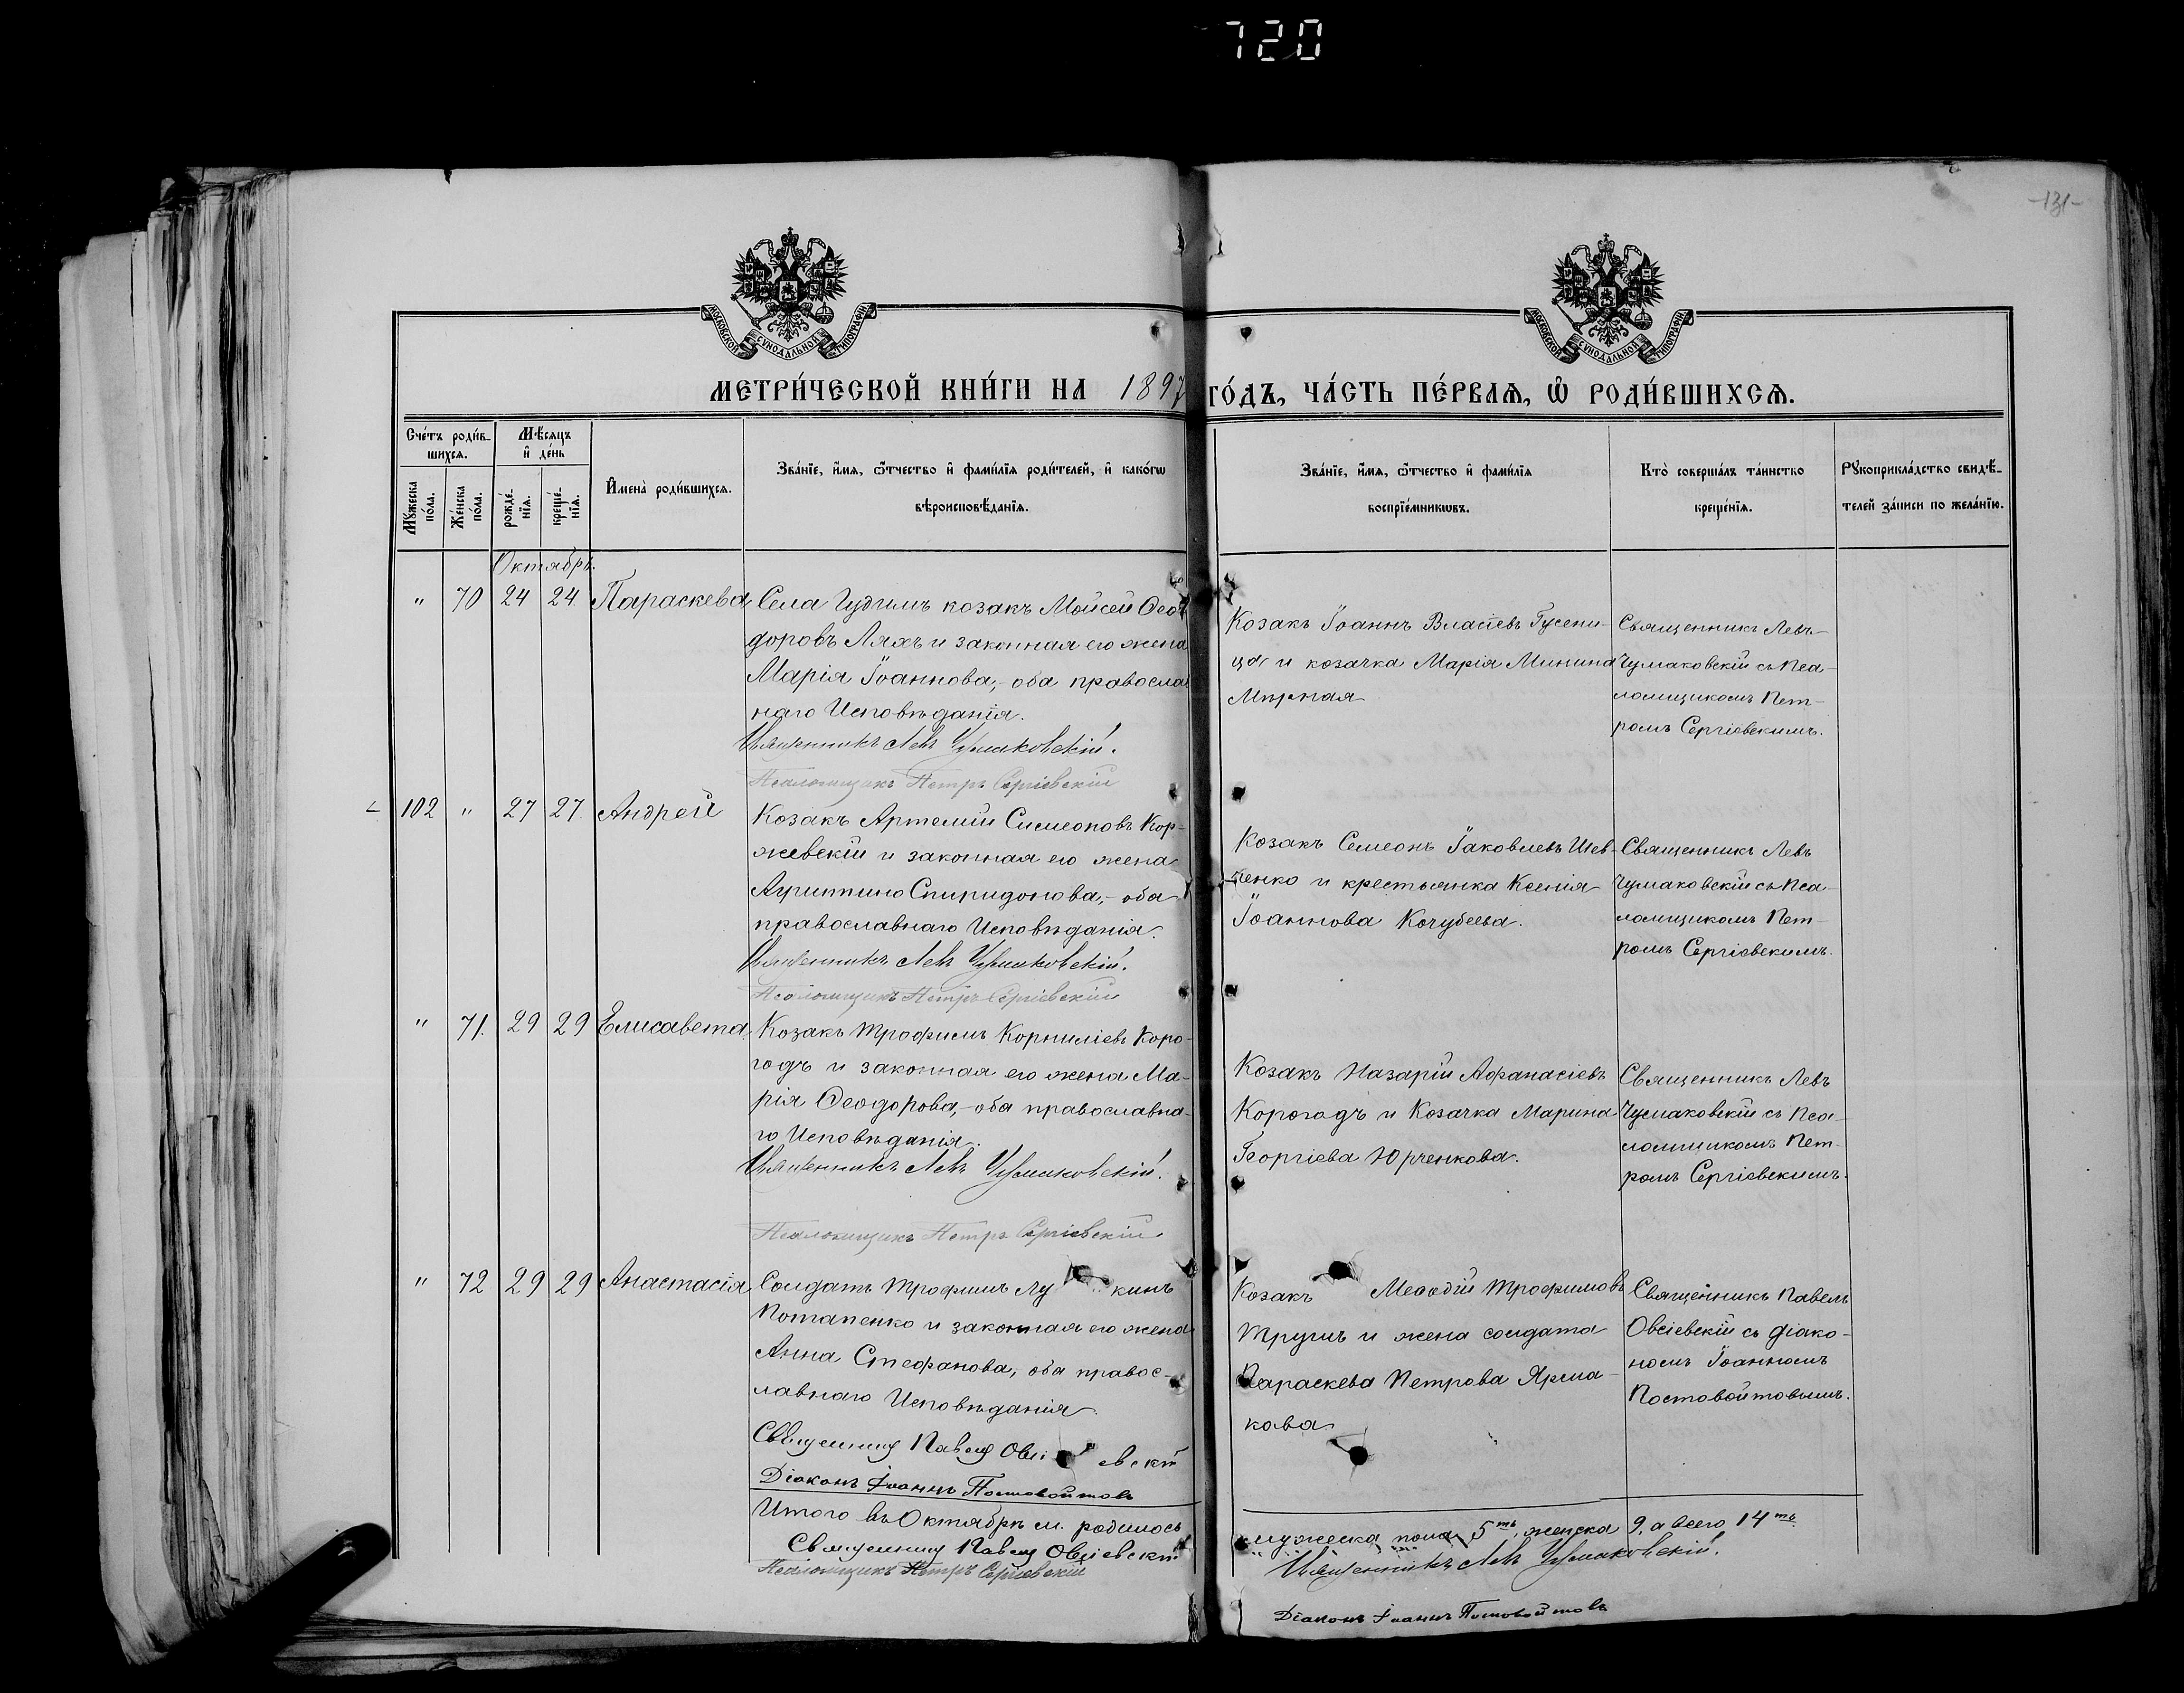 720
-131-
МОСКОВСКОЙ СѴНОДАЛЬНОЙ ТИПОГРАФІИ
МОСКОВСКОЙ СѴНОДАЛЬНОЙ ТИПОГРАФІИ
МЕТРИ́ЧЕСКОЙ КНИ́ГИ НА 1897 ГО́ДЪ, ЧА́СТЬ ПЕ́РВАѦ, Ѡ҆ РОДИ́ВШИХСѦ.
Сче́тъ роди́в-
шихсѧ.
Мꙋ́жеска по́ла.
Же́нска по́ла.
Мѣ́сѧцъ и҆ де́нь
рожде́-нїѧ.
креще́-нїѧ.
И҆мена̀ роди́вшихсѧ.
Зва́нїе, и҆́мѧ, ѻ҆́тчество и҆ фами́лїѧ роди́телей, и҆ како́гѡ
вѣроисповѣ́данїѧ.
Зва́нїе, и҆́мѧ, ѻ҆́тчество и҆ фами́лїѧ
воспрїе́мникѡвъ.
Кто̀ соверша́лъ та́инство
креще́нїѧ.
Рꙋкоприкла́дство свидѣ́-
телей за́писи по жела́нїю.
Октябрь.
" 70 24 24. Параскева
Села Чудгимъ козакъ Мойсей Ѳео-
доровъ Ляхъ и законная его жена
Марія Іоаннова,- оба правосла
наго Исповѣданія.
Священникъ Левъ Чумаковскій.
Псаломщикъ Петръ Сергіевскій
Козакъ Іоаннъ Власіевъ Гусени-
ца и козачка Марія Минина
Мирная
Священникъ Левъ
Чумаковскій съ Пса-
ломщикомъ Пет-
ромъ Сергіевскимъ.
102 " 27 27. Андрей
Козакъ Артемій Симеоновъ Кор-
жевскій и законная его жена
Агриппина Спиридонова,- оба
православнаго Исповѣданія.
Священникъ Левъ Чумаковскій.
Псаломщикъ Петръ Сергіевскій
Козакъ Семеонъ Іаковлевъ Шев-
ченко и крестьянка Ксенія
Іоаннова Кочубеева.
Священникъ Левъ
Чумаковскій съ Пса-
ломщикомъ Пет-
ромъ Сергіевскимъ.
" 71. 29 29 Елисавета
Козакъ Трофимъ Корниліевъ Коро-
годъ и законная его жена Ма-
рія Ѳеодорова,- оба православна-
го Исповѣданія.
Священникъ Левъ Чумаковскій.
Псаломщикъ Петръ Сергіевскій
Козакъ Назарій Афанасіевъ
Корогодъ и Козачка Марина
Георгіева Юрченкова.
Священникъ Левъ
Чумаковскій съ Пса-
ломщикомъ Пет-
ромъ Сергіевскимъ.
" 72 29 29 Анастасія
Солдатъ Трофимъ Лу кинъ
Потапенко и законная его жена
Анна Стефанова, оба правос-
лавнаго Исповѣданія.
Священникъ Павелъ Овсіевскій
Діаконъ Іоаннъ Постовойтовъ
Козакъ Меѳодій Трофимовъ
Трушъ и жена солдата
Параскева Петрова Ярма-
кова
Священникъ Павелъ
Овсіевскій съ діако-
номъ Іоанномъ
Постовойтовымъ.
Итого въ Октябрѣ м. родилось мужеска пола 5ть, женска 9, а всего 14ть.
Священникъ Павелъ Овсіевскій
Псаломщикъ Петръ Сергіевскій
Священникъ Левъ Чумаковскій.
Діаконъ Іоаннъ Постовойтовъ